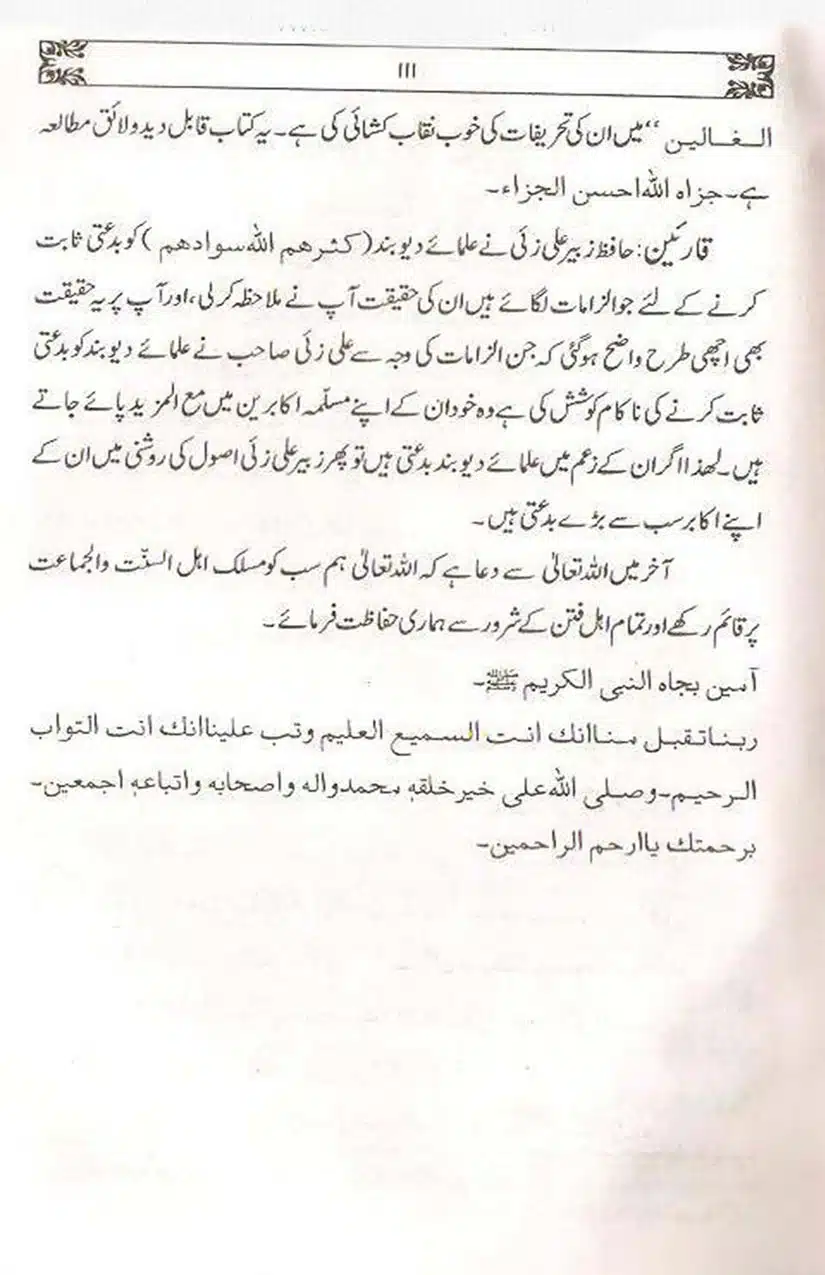 ۱۱۱
الغالین‘‘ میں ان کی تحریفات کی خوب نقاب کشائی کی ہے۔ یہ کتاب قابل دید ولائق مطالعہ
ہے۔ جزاہ اللہ احسن الجزاء۔
قارئین: حافظ زبیر علی زئی نے علمائے دیوبند (کثرهم اللہ سوادهم) کو بدعتی ثابت
کرنے کے لئے جو الزامات لگائے ہیں ان کی حقیقت آپ نے ملاحظہ کر لی، اور آپ پر یہ حقیقت
بھی اچھی طرح واضح ہوگئی کہ جن الزامات کی وجہ سے علی زئی صاحب نے علمائے دیوبند کو بدعتی
ثابت کرنے کی ناکام کوشش کی ہے وہ خود ان کے اپنے مسلّمہ اکابرین میں مع المزید پائے جاتے
ہیں۔ لھذا اگر ان کے زعم میں علمائے دیوبند بدعتی ہیں تو پھر زبیر علی زئی اصول کی روشنی میں ان کے
اپنے اکابر سب سے بڑے بدعتی ہیں۔
آخر میں اللہ تعالیٰ سے دعا ہے کہ اللہ تعالیٰ ہم سب کو مسلک اہل السنّت والجماعت
پر قائم رکھے اور تمام اہل فتن کے شرور سے ہماری حفاظت فرمائے۔
آمین بجاہ النبی الکریم ﷺ۔
ربنا تقبل منا انك انت السمیع العلیم وتب علینا انك انت التواب
الرحیم۔ وصلی اللہ علی خیر خلقهٖ محمد واله واصحابه واتباعهٖ اجمعین۔
برحمتك یا ارحم الراحمین۔